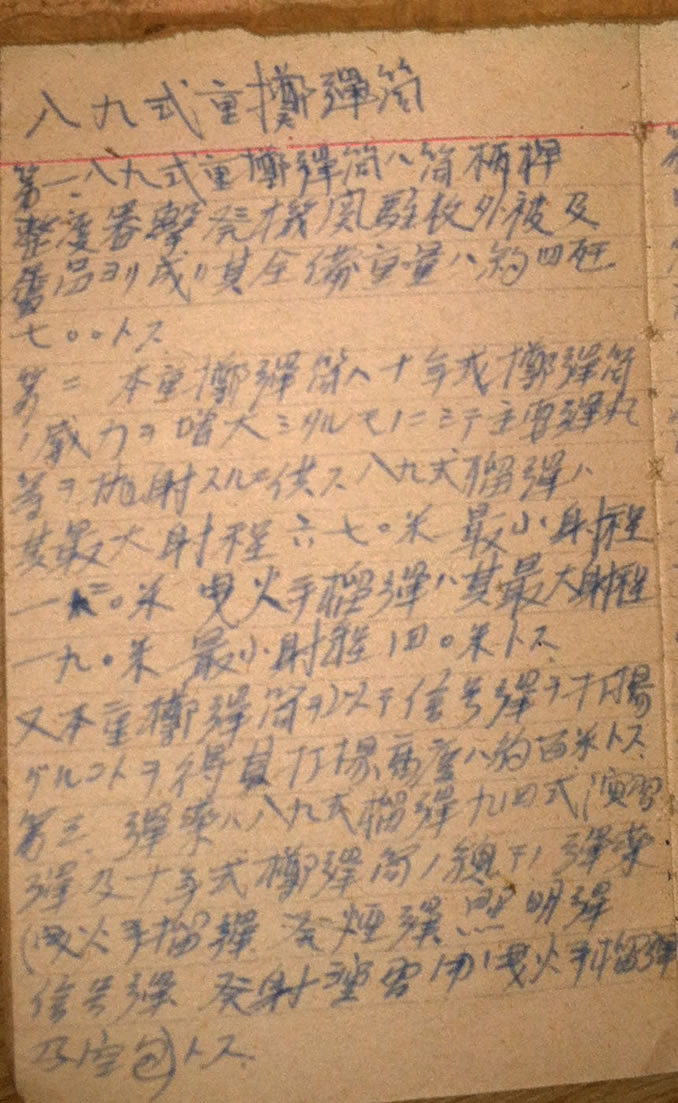 八九式重擲彈筒
第一、八九式重擲彈筒ハ筒柄桿
整度器撃発機 駐板外被及
属品ヨリ成リ其全備重量ハ約四瓩
七〇〇トス
第二 本重擲彈筒ハ十年式擲彈筒
ノ威力ヲ増大シタルモノニシテ主要彈丸
等ヲ抛射スルニ供ス八九式榴彈ハ
其最大射程六七〇米 最小射程
一二〇米 曳火手榴彈ハ其最大射程
一九〇米 最小射程四〇米トス
又本重擲彈筒ヲ以テ信号彈ヲ打揚
グルコトヲ得其打揚高度ハ約百米トス
第三、彈薬ハ八九式榴彈九四式演習
彈及十年式擲彈筒ノ 彈薬
(曳火手榴彈 発煙彈 照明彈
信号彈 発射 曳火手榴彈
及空包)トス